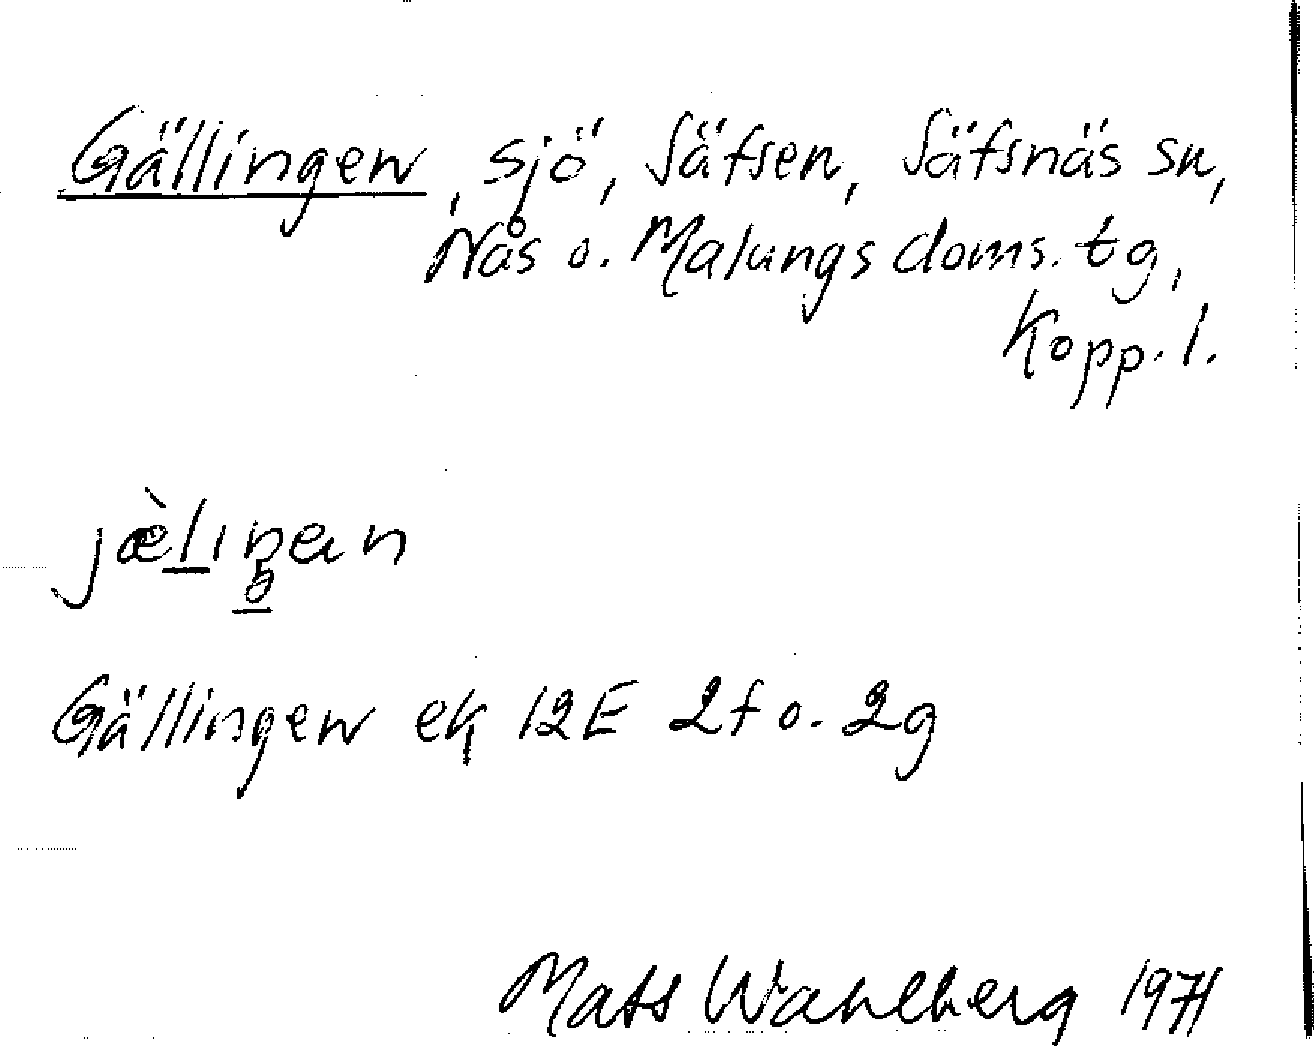 Gällingen, sjö, Säfsen, Säfsnäs sn,
Nås o. Malungs doms. tg,
Kopp. l.
Gällingen ek 12E 2f o. 2g
Mats Wahlberg 1971